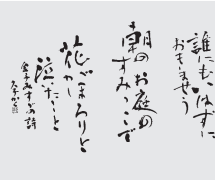 誰にもいはずに
おきませう
朝のお庭の
すみつこで
花がほろりと
泣いたこと
金子みすゞの詩